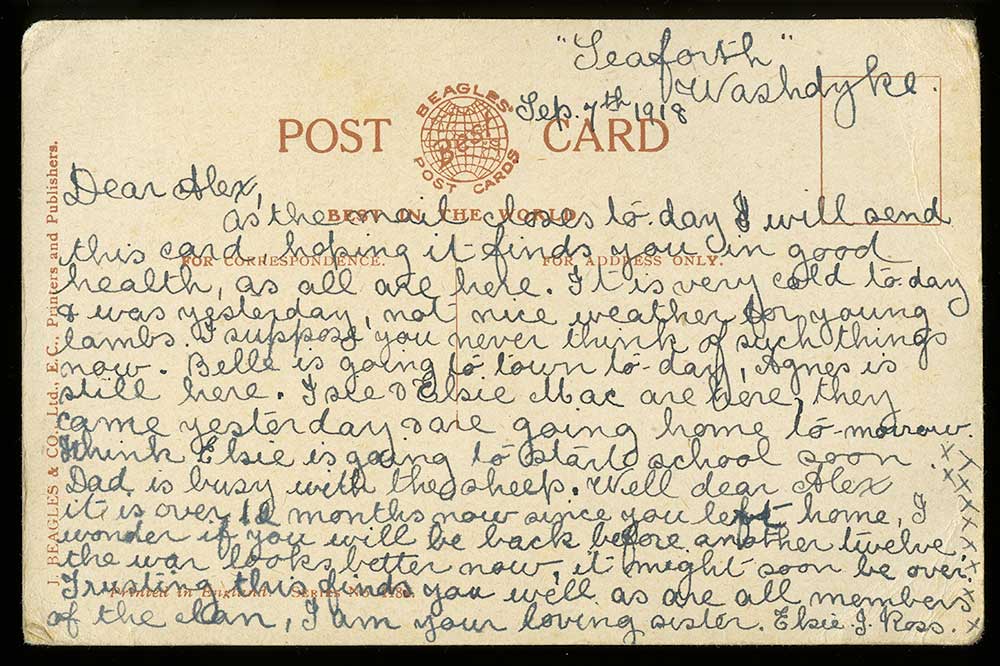 "Seaforth"
Washdyke.
Sep. 7th 1918
BEAGLES'
Best
POST CARDS
POST CARD
BEST IN THE WORLD
FOR CORRESPONDENCE.
FOR ADDRESS ONLY.
Dear Alex,
As the mail closes to-day I will send
this card hoping it finds you in good
health, as all are here. It is very cold to-day
& was yesterday, not nice weather for young
lambs. I suppose you never think of such things
now. Belle is going to town to-day, Agnes is
still here. & Elsie Mac are here, they
came yesterday & are going home to-morrow.
I think Elsie is going to start school soon.
Dad is busy with the sheep. Well dear Alex
it is over 12 months now since you left home, I
wonder if you will be back before another twelve,
the war looks better now, it might soon be over.
Trusting this finds you well as are all members
of the clan, I am your loving sister. Elsie J. Ross.
x x x x x x x x x x x x
Printed in England. SERIES No.
J. BEAGLES & CO., Ltd., E.C., Printers and Publishers.